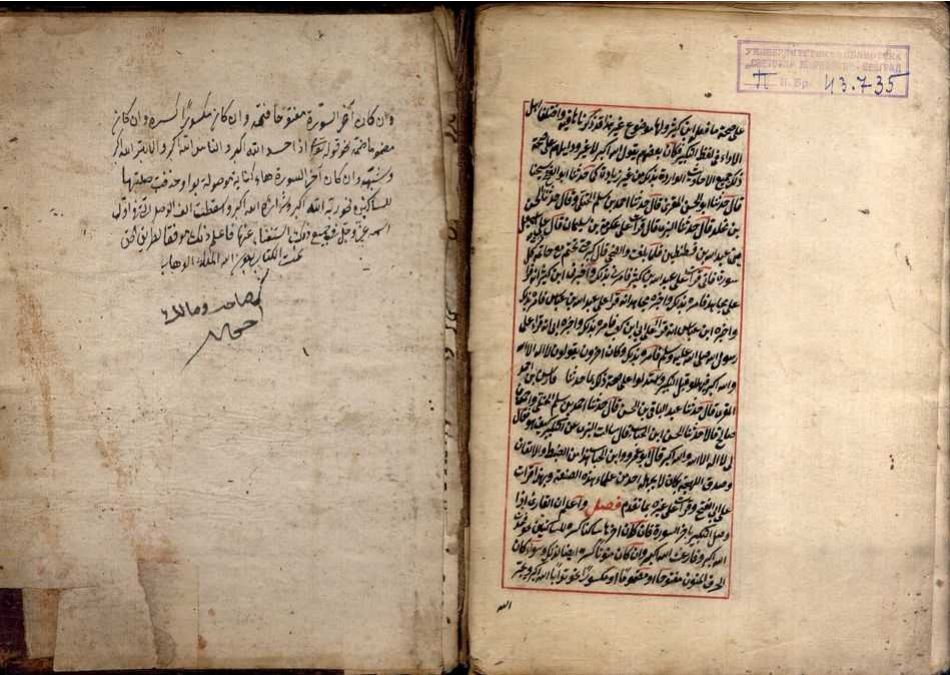 УНИВЕРЗИТЕТСКА БИБЛИОТЕКА
СВЕТОЗАР МАРКОВИЋ - БЕОГРАД
И. Бр. 43.735
على صحة ما فعل ابن كثير ولها موضوع غير هذا قد ذكرناها فيه واختلف اهل
الاداء فى لفظ التكبير فكان بعضهم يقول الله اكبر لا غير ودليلهم على صحة
ذلك جميع الاحاديث الواردة بذلك من غير زيادة كما حدثنا ابو الفتح شيخنا
قال حدثنا ابو الحسن المقرئ قال حدثنا احمد بن سلم الختلى قال حدثنا الحسن
بن مخلد قال حدثنا البزى قال قرأت على عكرمة بن سليمان قال قرأت على اسمعيل
بن عبد الله بن قسطنطين فلما بلغت والضحى قال كبر حتى تختم مع خاتمة كل
سورة فانى قرأت على عبد الله بن كثير فامرنى بذلك واخبرنى ابن كثير انه قرأ
على مجاهد فامره بذلك واخبره مجاهد انه قرأ على عبد الله بن عباس فامره بذلك
واخبره ابن عباس انه قرأ على ابى بن كعب فامره بذلك واخبره ابى انه قرأ على
رسول الله صلى الله عليه وسلم فامره بذلك وكان اخرون يقولون لا اله الا الله
والله اكبر فيهللون قبل التكبير واستدلوا على صحة ذلك بما حدثنا فارس بن احمد
المقرئ قال حدثنا عبد الباقى بن الحسن قال حدثنا احمد بن سلم الختلى واحمد بن
صالح قالا حدثنا الحسن ابن الحباب قال سالت البزى عن التكبير كيف هو فقال
لى لا اله الا الله والله اكبر قال ابو عمرو وابن الحباب هذا من الضبط والاتقان
وصدق اللهجة بمكان لا يجهله احد من علماء هذه الصنعة وبهذا قرات
على ابى الفتح وقرات على غيره بما تقدم فصل واعلم ان القارئ اذا
وصل التكبير باخر السورة فان كان اخرها ساكنا كسره للساكنين نحو فحدث
الله اكبر وفارغب الله اكبر وان كان منونا كسره ايضا لذلك وسواء كان
الحرف المنون مفتوحا او مضموما او مكسورا نحو توابا الله اكبر ولخبير
الله
وان كان آخر السورة مفتوحا فتحه وان كان مكسورا كسره وان كان
مضموما ضمه نحو قوله اذا حسد الله اكبر والناس الله اكبر والابتر الله اكبر
وشبهه وان كان آخر السورة هاء كناية موصولة بواو حذفت صلتها
للساكنين نحو ربه الله اكبر وشرا يره الله اكبر واسقطت الف الوصل التى فى اول
اسم الله عز وجل فى جميع ذلك استغناء عنها فاعلم ذلك موفقا لطريق الحق
تمت الكتاب بعون الله الملك الوهاب
صاحبه ومالكه